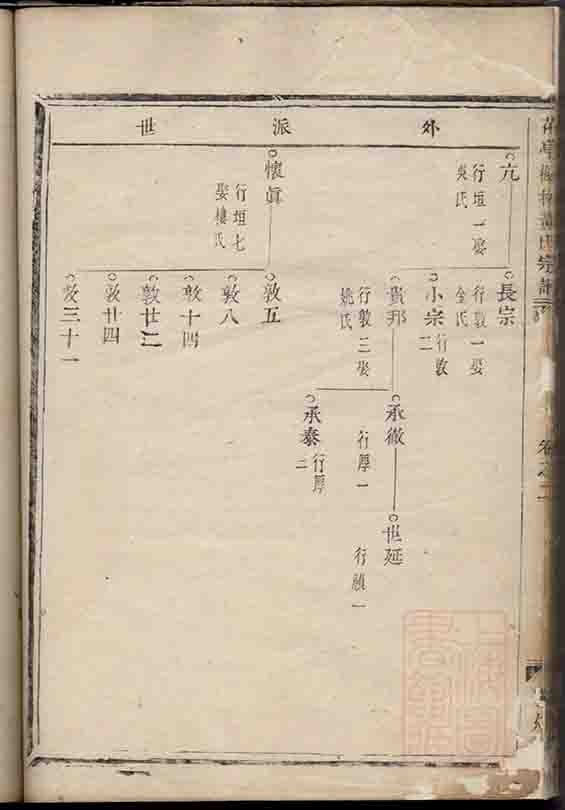 外派世
亢
行垣一娶
吳氏
長宗
行敦一娶
金氏
小宗
行敦
二
貴邦
行敦三娶
姚氏
承徽
行厚一
承泰
行厚
二
世延
行禎一
懷眞
行垣七
娶樓氏
敦五
敦八
敦十四
敦廿二
敦廿四
敦三十一
氏宗譜
卷之二